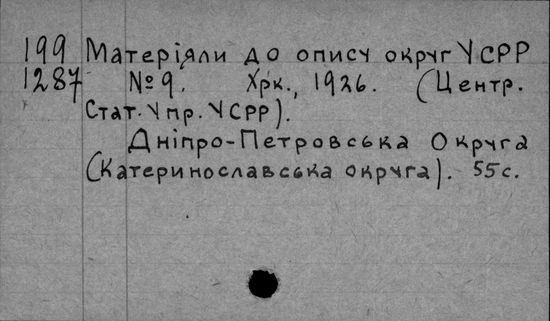 199 Матеріяли до опису округ УСРР
1287 № 9. Хрк., 1926. (Центр.
Стат. Упр. УСРР).
Дніпро-Петровська Округа
(Катеринославська округа). 55 с.